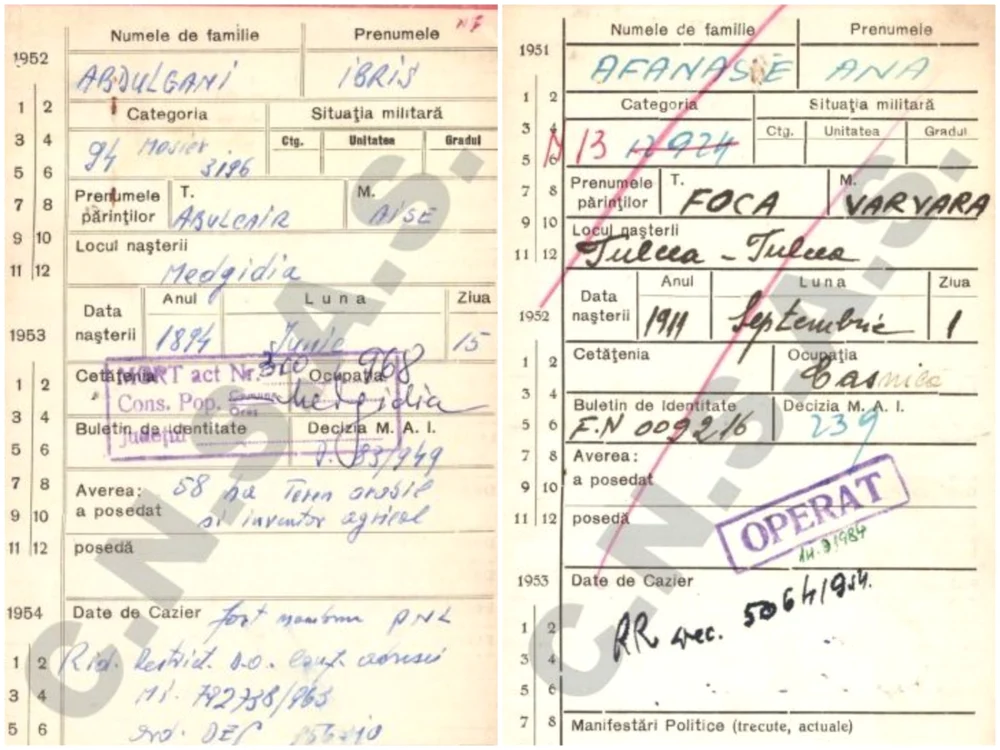 Nº 7
Numele de familie Prenumele
1952
ABDULGANI IBRIS
1 2
Categoria Situația militară
3 4
94 Mosier 3196
Ctg. Unitatea Gradul
5 6
Prenumele părinților T. ABULCAIR M. AISE
7 8
9 10
Locul nașterii
11 12
Medgidia
Data nașterii Anul Luna Ziua
1953
1894 Iunie 15
Cetățenia Ocupația
MORT act Nr. 300 968
1 2
Cons. Pop. Comuna Oraș Medgidia
3 4
Buletin de identitate Decizia M. A. I.
Județul
5 6
D. 83/949
7 8
Averea: 58 ha Teren arabil
a posedat si inventar agricol
9 10
11 12
posedă
1954
Date de Cazier fost membru PNL
1 2
Rid. Restrict. D.O. Conf. adresei
3 4
MI. 792738/963
5 6
C.N.S.A.S.
Numele de familie Prenumele
1951
AFANASIE ANA
1 2
Categoria Situația militară
3 4
N 13 12924
Ctg. Unitatea Gradul
5 6
Prenumele părinților T. FOCA M. VARVARA
7 8
9 10
Locul nașterii
11 12
Tulcea - Tulcea
Data nașterii Anul Luna Ziua
1952
1911 Septembrie 1
1 2
Cetățenia Ocupația
Casnica
3 4
Buletin de Identitate Decizia M. A. I.
5 6
F.N 009216 239
7 8
Averea:
a posedat
9 10
OPERAT
11 12
posedă
14.9 1984
1953
Date de Cazier
1 2
RR 5064/954.
3 4
5 6
7 8
Manifestări Politice (trecute, actuale)
C.N.S.A.S.